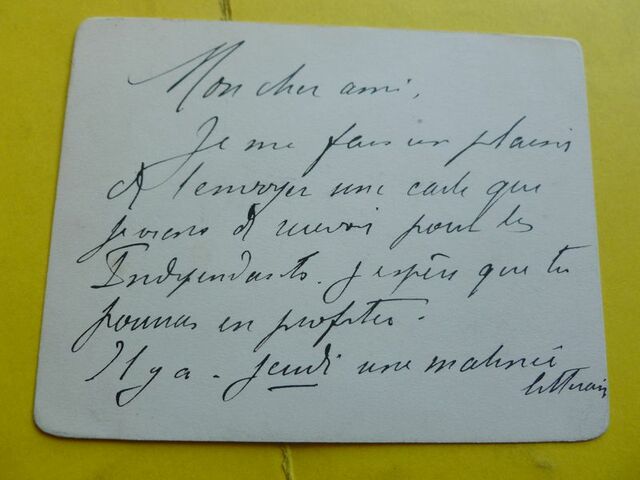 Mon cher ami,
Je me fais un plaisir
de t'envoyer une carte que
je viens de recevoir pour les
Indépendants. J'espère que tu
pourras en profiter.
Il y a - jeudi une matinée
littéraire